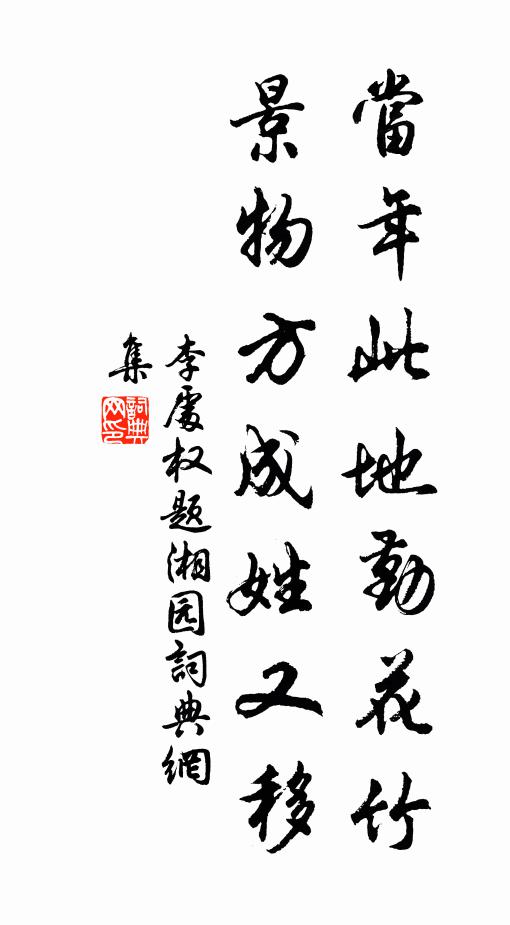 當年此地勤花竹
景物方成姓又移
李處权题湘园詞典網
集
詞典
网印